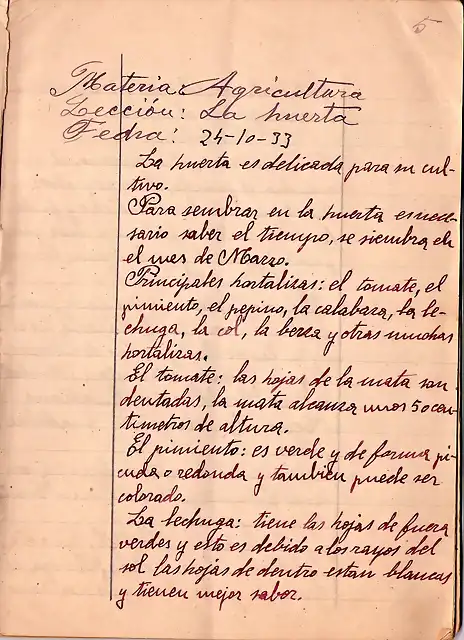 5
Materia: Agricultura
Lección: La huerta
Fecha: 24-10-33
La huerta es delicada para su cul-
tivo.
Para sembrar en la huerta es nece-
sario saber el tiempo, se siembra en
el mes de Marzo.
Principales hortalizas: el tomate, el
pimiento, el pepino, la calabaza, la le-
chuga, la col, la berza y otras muchas
hortalizas.
El tomate: las hojas de la mata son
dentadas, la mata alcanza unos 50 cen-
tímetros de altura.
El pimiento: es verde y de forma pi-
cuda o redonda y también puede ser
colorado.
La lechuga: tiene las hojas de fuera
verdes y esto es debido a los rayos del
sol las hojas de dentro estan blancas
y tienen mejor sabor.